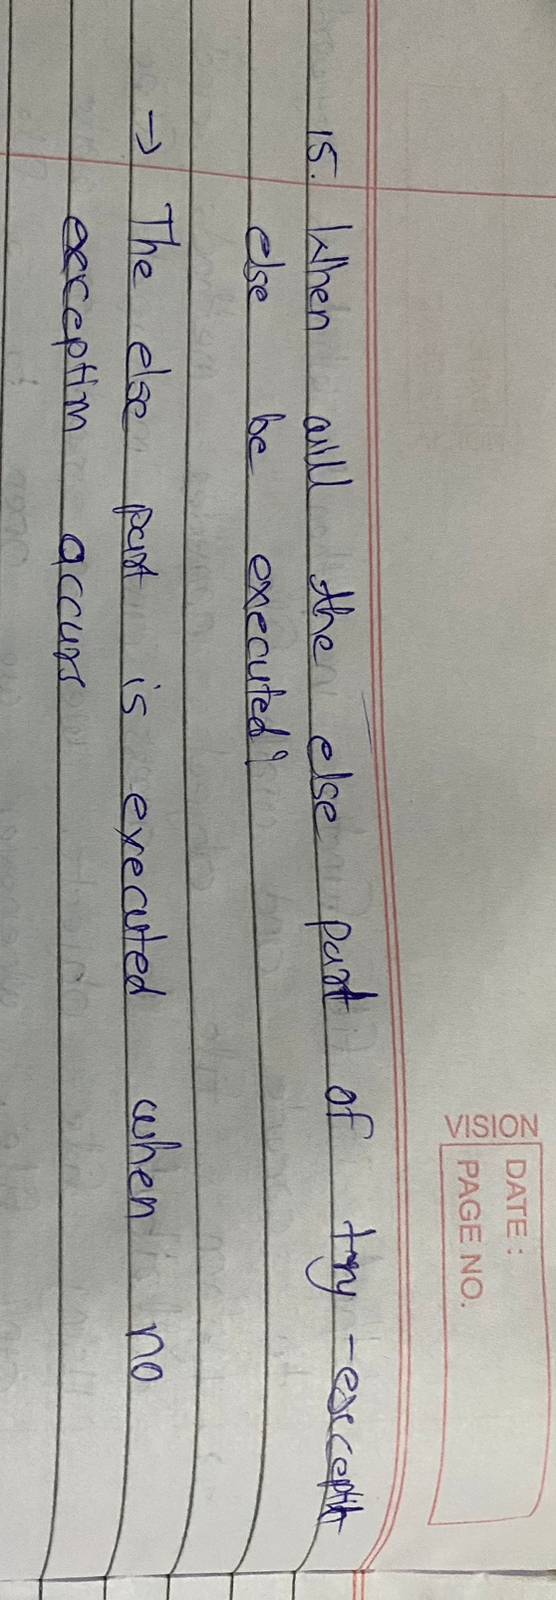 VISION
DATE :
PAGE NO.
15. When will the else part of try-except
else be executed?
→ The else part is executed when no
exception occurs